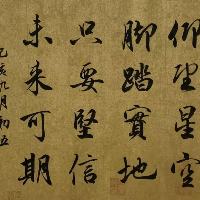 仰望星空
脚踏實地
只要堅信
未来可期
乙亥九月初五